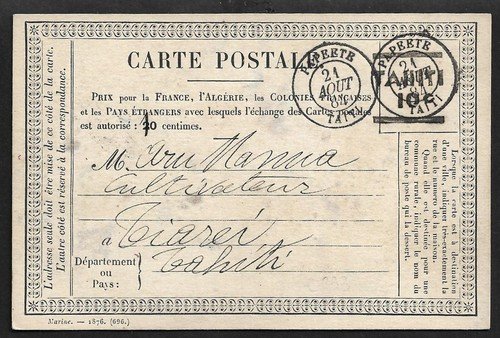 CARTE POSTALE
PAPEETE
21
AOUT
84
TAITI
PAPEETE
21
AOUT
84
TAITI
TAHITI
10 c
PRIX pour la FRANCE, l'ALGÉRIE, les COLONIES FRANÇAISES
et les PAYS ÉTRANGERS avec lesquels l'échange des Cartes postales
est autorisé : 10 centimes.
M.
Cultivateur
à Tiarei
Département
ou
Pays:
Tahiti
L'adresse seule doit être mise de ce côté de la carte.
L'autre côté est réservé à la correspondance.
Lorsque la carte est à destination
d'une ville, indiquer très-exactement la
rue et le numéro de la maison.
Quand elle est destinée pour une
commune rurale, indiquer le nom du
bureau de poste qui la dessert.
Marine. — 1876. (696.)